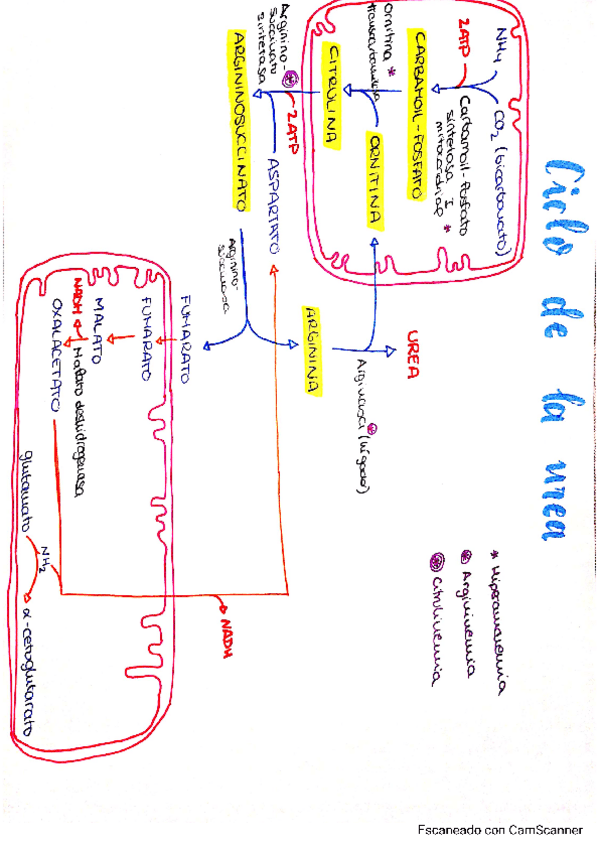 Ciclo de la urea
* Hiperamonemia
Argininemia
Citrulinemia
NH4
CO2 (bicarbonato)
2ATP
Carbamoil-fosfato
sintetasa I *
mitocondrial
CARBAMOIL-FOSFATO
Ornitina *
transcarbamilasa
ORNITINA
CITRULINA
Arginino-
succinato
sintetasa
2ATP
ASPARTATO
ARGININOSUCCINATO
Arginino-
succinasa
ARGININA
UREA
Arginasa (hígado)
FUMARATO
FUMARATO
MALATO
NADH
Malato deshidrogenasa
OXALACETATO
glutamato
NH2
α-cetoglutarato
NADH
Escaneado con CamScanner